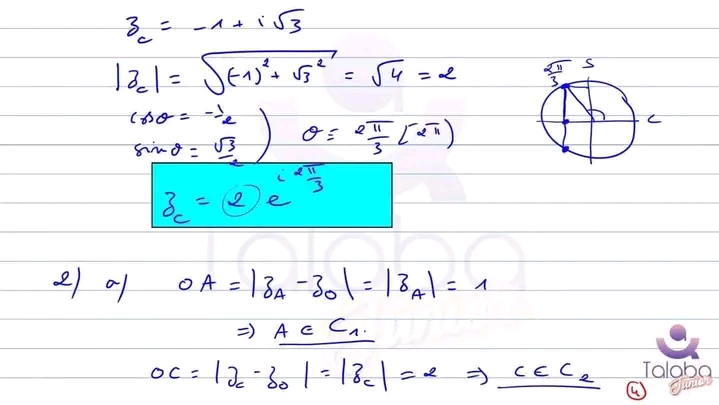 z_c = -1 + i√3
|z_c| = √((-1)² + √3²) = √4 = 2
cosθ = -1/2
sinθ = √3/2
θ = 2π/3 [2π]
2π/3
S
C
z_c = 2 e^{i 2π/3}
2) a) OA = |z_A - z_O| = |z_A| = 1
⇒ A ∈ C₁.
OC = |z_c - z_O| = |z_c| = 2 ⇒ C ∈ C₂
4
Talaba
Junior
Talaba
Junior